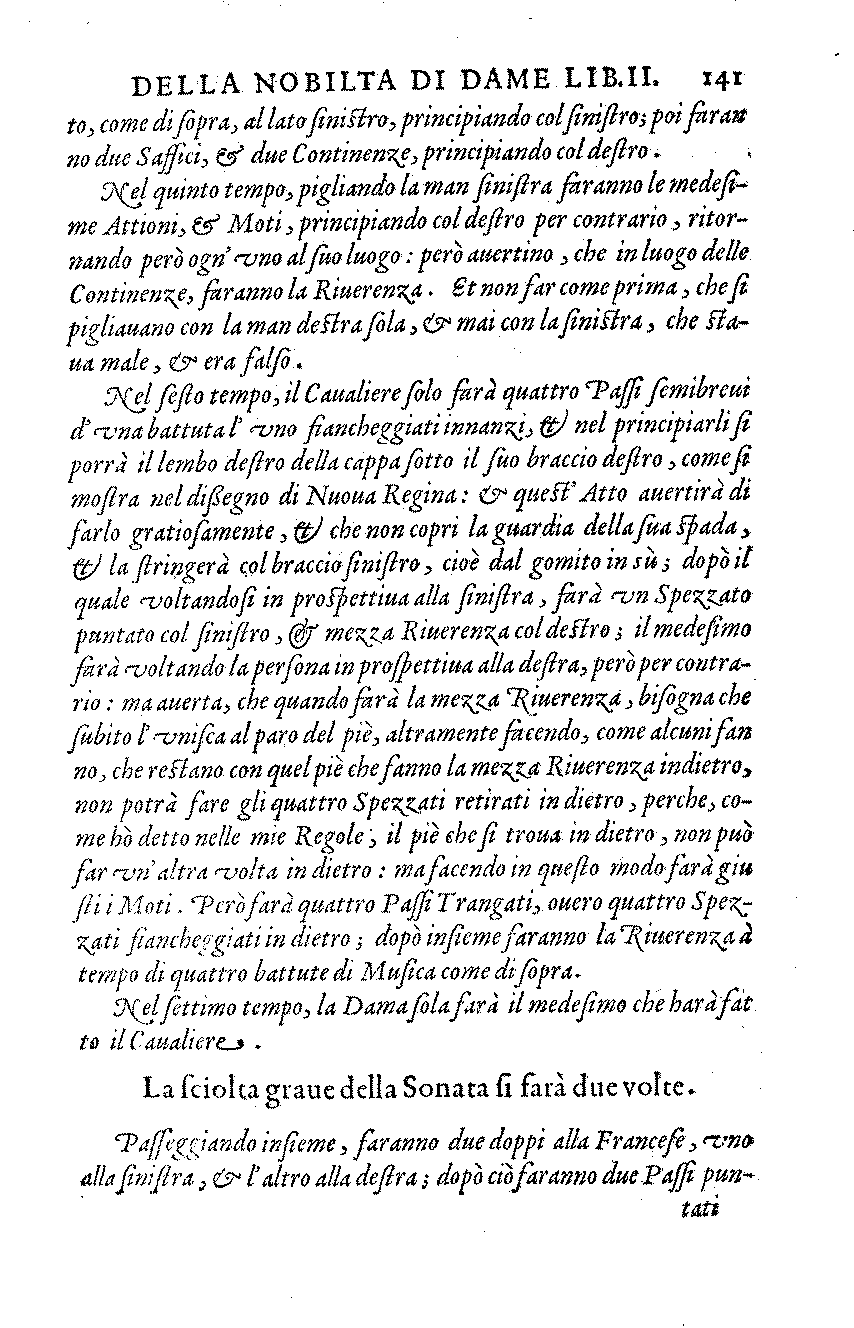 DELLA NOBILTA DI DAME LIB.II. 141
to, come di ſopra, al lato ſiniſtro, principiando col ſiniſtro; poi faran
no due Saffici, & due Continenze, principiando col deſtro.
Nel quinto tempo, pigliando la man ſiniſtra faranno le medeſi-
me Attioni, & Moti, principiando col deſtro per contrario, ritor-
nando però ogn' vno al ſuo luogo: però auertino, che in luogo delle
Continenze, faranno la Riuerenza. Et non far come prima, che ſi
pigliauano con la man deſtra ſola, & mai con la ſiniſtra, che ſta-
ua male, & era falſo.
Nel ſeſto tempo, il Caualiere ſolo farà quattro Paſſi ſemibreui
d' vna battuta l' vno fiancheggiati innanzi, & nel principiarli ſi
porrà il lembo deſtro della cappa ſotto il ſuo braccio deſtro, come ſi
moſtra nel diſſegno di Nuoua Regina: & queſt' Atto auertirà di
farlo gratioſamente, & che non copri la guardia della ſua ſpada,
& la ſtringerà col braccio ſiniſtro, cioè dal gomito in sù; dopò il
quale voltandoſi in proſpettiua alla ſiniſtra, farà vn Spezzato
puntato col ſiniſtro, & mezza Riuerenza col deſtro; il medeſimo
farà voltando la perſona in proſpettiua alla deſtra, però per contra-
rio: ma auerta, che quando farà la mezza Riuerenza, biſogna che
ſubito l' vniſca al paro del piè, altramente facendo, come alcuni fan
no, che reſtano con quel piè che fanno la mezza Riuerenza indietro,
non potrà fare gli quattro Spezzati retirati in dietro, perche, co-
me hò detto nelle mie Regole, il piè che ſi troua in dietro, non può
far vn' altra volta in dietro: ma facendo in queſto modo farà giu
ſti i Moti. Però farà quattro Paſſi Trangati, ouero quattro Spez-
zati fiancheggiati in dietro; dopò inſieme faranno la Riuerenza à
tempo di quattro battute di Muſica come di ſopra.
Nel ſettimo tempo, la Dama ſola farà il medeſimo che harà fat
to il Caualiere.
La ſciolta graue della Sonata ſi farà due volte.
Paſſeggiando inſieme, faranno due doppi alla Franceſe, vno
alla ſiniſtra, & l' altro alla deſtra; dopò ciò faranno due Paſſi pun-
tati